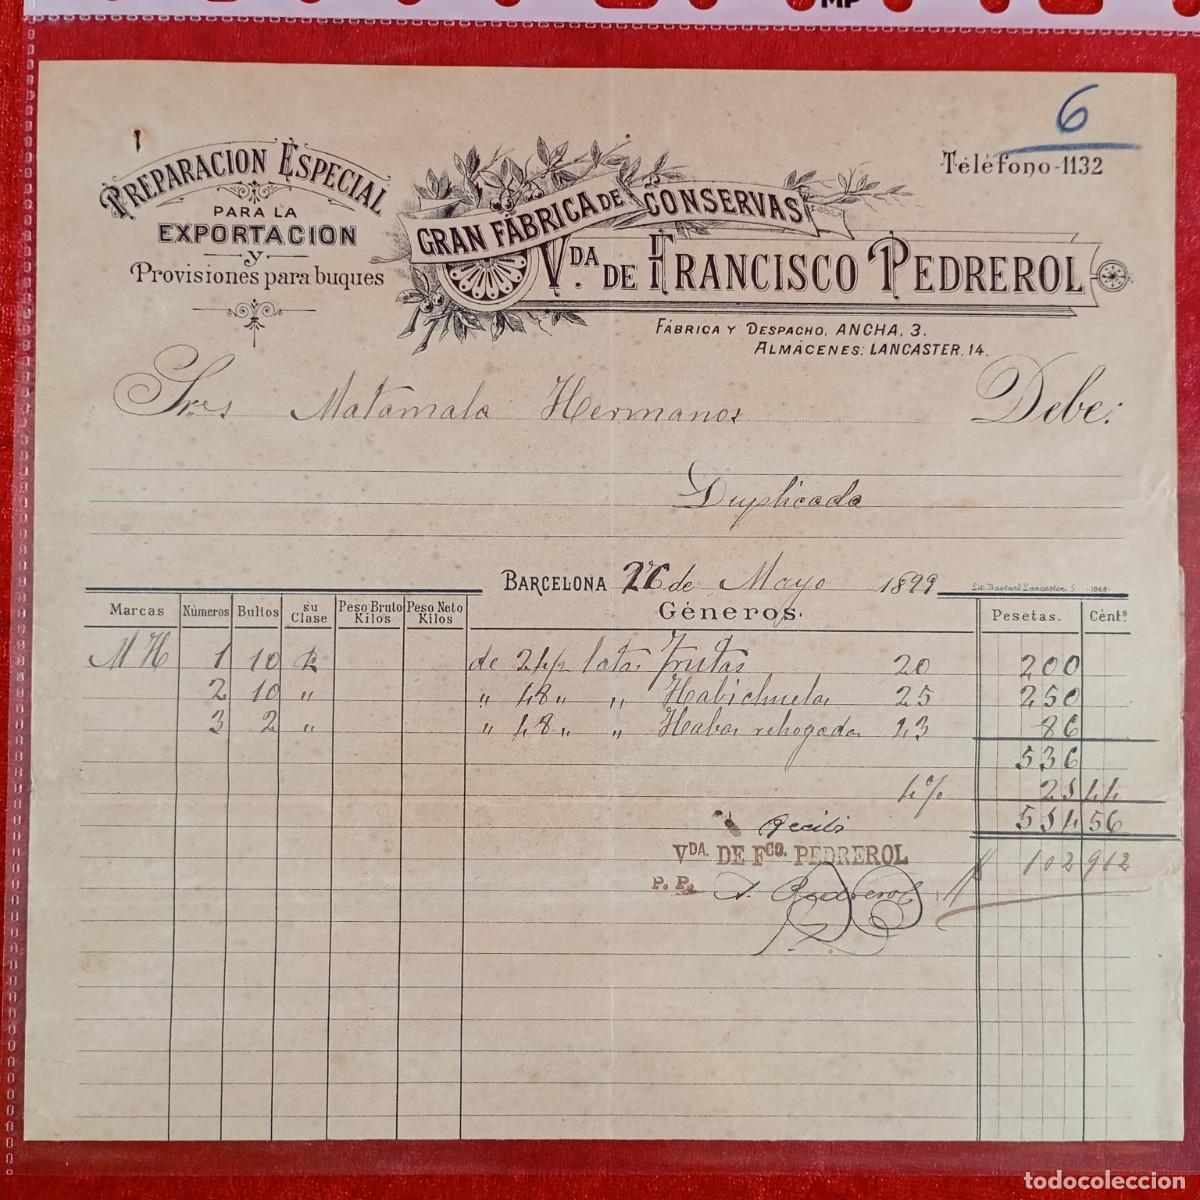 MP
6
PREPARACION ESPECIAL
PARA LA
EXPORTACION
y
Provisiones para buques
GRAN FÁBRICA DE CONSERVAS
VDA. DE FRANCISCO PEDREROL
Téléfono-1132
FÁBRICA Y DESPACHO, ANCHA, 3.
ALMÁCENES: LANCASTER, 14.
Sres Matamala Hermanos Debe:
Duplicada
BARCELONA 26 de Mayo 1899
Lit. Bastard Lancaster 5
Marcas Números Bultos su Clase Peso Bruto Kilos Peso Neto Kilos Géneros. Pesetas. Cénts
MH 1 10 de 24/2 latas frutas 20 200
2 10 " " 48 " " Habichuelas 25 250
3 2 " " 48 " " Habas rehogadas 43 86
536
4% 21 44
514 56
Recibí
VDA. DE FCO. PEDREROL
P. P. A. Pedrerol
102 912
todocoleccion